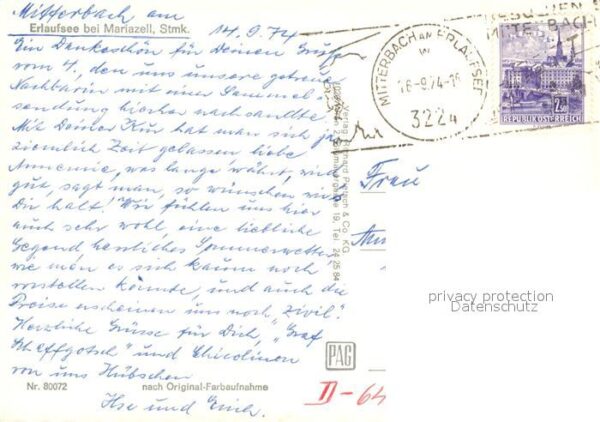 Mitterbach am
Erlaufsee bei Mariazell, Stmk.
14.9.74
Ein Dankeschön für Deinen Gruß
vom 4., den uns unsere getreue
Nachbarin mit einer Sammel-
sendung hierher nachsandte.
Mit Deiner Kur hat man sich ja
ziemlich Zeit gelassen liebe
Annemie, was lange währt, wird
gut, sagt man, so wünschen wir's
Dir halt! Wir fühlen uns hier
auch sehr wohl, eine liebliche
Gegend herrliches Sommerwetter,
wie man es sich kaum noch
vorstellen konnte, und auch die
Preise erscheinen uns noch "zivil".
Herzliche Grüsse für Dich, "Graf
Scheffgotsch" und
von uns Hübschen
Ilse und Erich.
Nr. 80072
nach Original-Farbaufnahme
Verlag & Co. KG
19, Tel. 24 25 84
PAG
MITTERBACH AM ERLAUFSEE
16.-9.74-16
3224
BESUCHEN
MITTERBACH
REPUBLIK ÖSTERREICH
Frau
privacy protection
Datenschutz
D-64